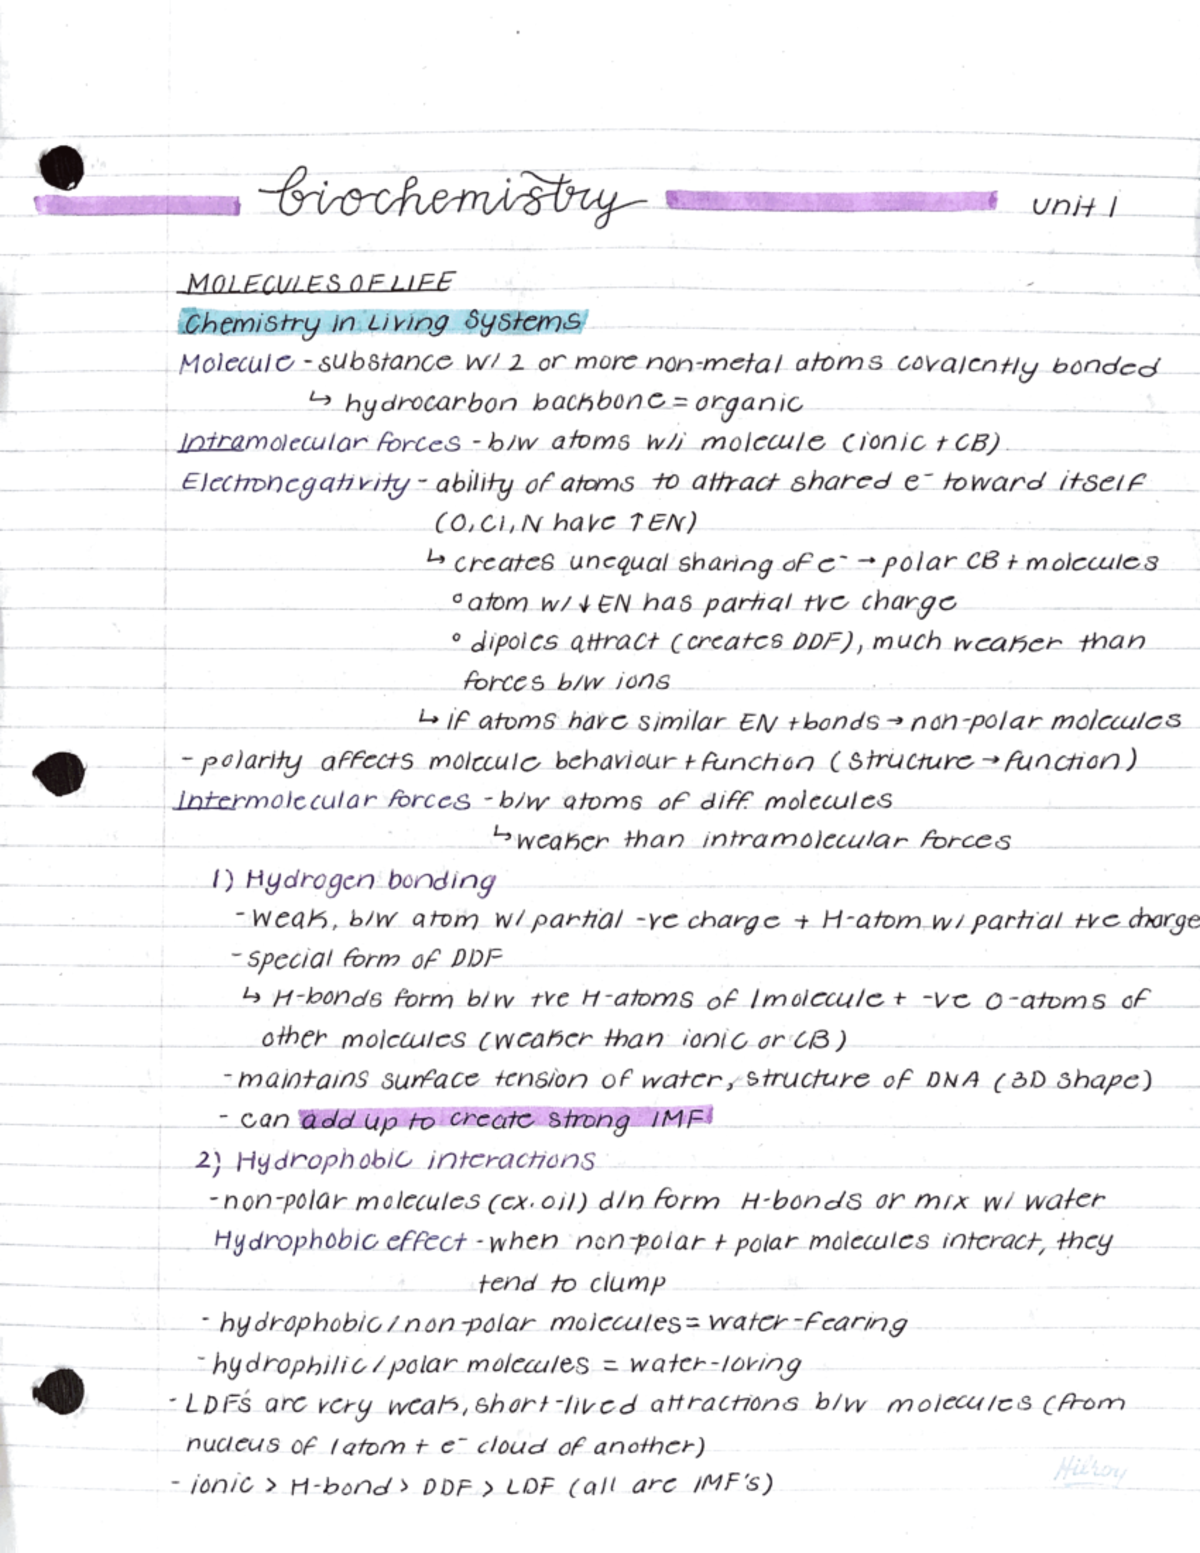 biochemistry unit 1
MOLECULES OF LIFE
Chemistry in Living Systems
Molecule - substance w/ 2 or more non-metal atoms covalently bonded
↳ hydrocarbon backbone = organic
Intramolecular forces - b/w atoms w/i molecule (ionic + CB)
Electronegativity - ability of atoms to attract shared e⁻ toward itself
(O, Cl, N have ↑EN)
↳ creates unequal sharing of e⁻ → polar CB + molecules
° atom w/ ↓EN has partial tve charge
° dipoles attract (creates DDF), much weaker than
forces b/w ions
↳ if atoms have similar EN + bonds → non-polar molecules
- polarity affects molecule behaviour + function (structure → function)
Intermolecular forces - b/w atoms of diff. molecules
↳ weaker than intramolecular forces
1) Hydrogen bonding
- weak, b/w atom w/ partial -ve charge + H-atom w/ partial +ve charge
- special form of DDF
↳ H-bonds form b/w +ve H-atoms of 1 molecule + -ve O-atoms of
other molecules (weaker than ionic or CB)
- maintains surface tension of water, structure of DNA (3D shape)
- can add up to create strong IMF
2) Hydrophobic interactions
- non-polar molecules (ex. oil) d/n form H-bonds or mix w/ water
Hydrophobic effect - when non-polar + polar molecules interact, they
tend to clump
- hydrophobic/non-polar molecules = water-fearing
- hydrophilic/polar molecules = water-loving
- LDF's are very weak, short-lived attractions b/w molecules (from
nucleus of 1 atom + e⁻ cloud of another)
- ionic > H-bond > DDF > LDF (all are IMF's)
Hilroy